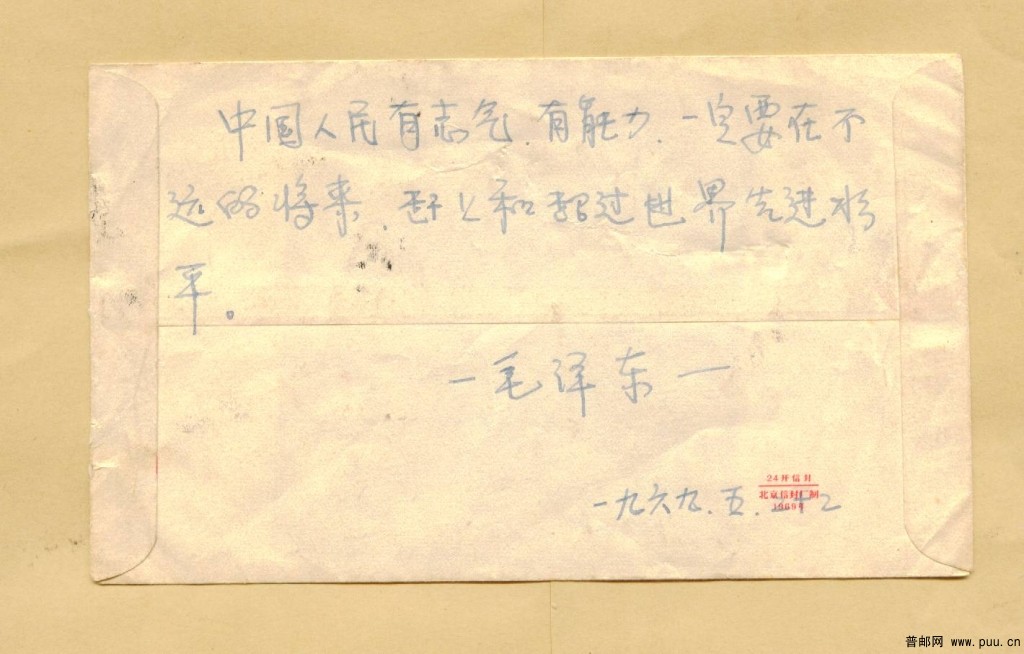 中国人民有志气.有能力.一定要在不
远的将来.赶上和超过世界先进水
平。
一毛泽东一
24开信封
北京信封厂制
一九六九.五.二十二
普邮网 www.puu.cn